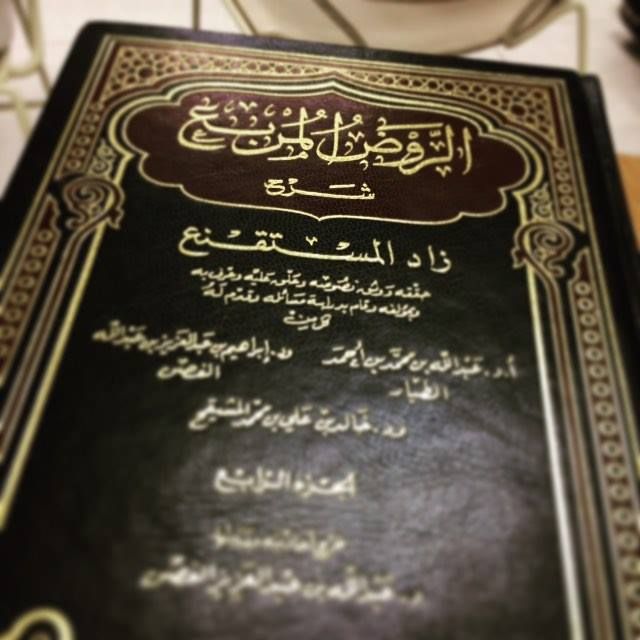 الروض المربع
شرح
زاد المستقنع
حققه ووثق نصوصه وعلق عليه وعرف به
وبمؤلفه وقام بدراسة مسائله وقدم له
أ.د. عبدالله بن محمد بن أحمد الطيار
ود. إبراهيم بن عبدالعزيز بن عبدالله الغصن
ود. خالد بن علي بن محمد المشيقح
الجزء الرابع
د. عبدالله بن عبدالعزيز الغصن